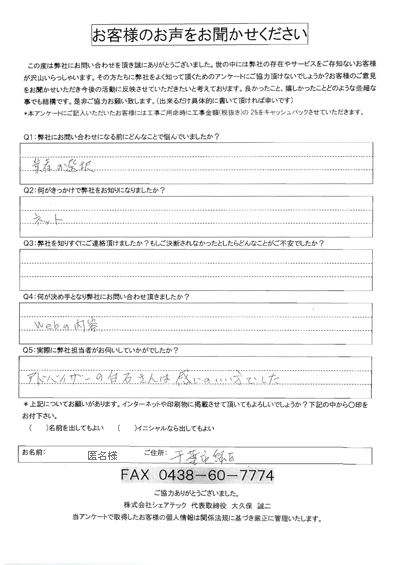 お客様のお声をお聞かせください
この度は弊社にお問い合わせを頂き誠にありがとうございました。世の中には弊社の存在やサービスをご存知ないお客様
が沢山いらっしゃいます。その方たちに弊社をよく知って頂くためのアンケートにご協力頂けないでしょうか?お客様のご意見
をお聞かせいただき今後の活動に反映させていただきたいと考えております。良かったこと、嬉しかったことどのような些細な
事でも結構です。是非ご協力お願い致します。(出来るだけ具体的に書いて頂ければ幸いです)
*本アンケートにご記入いただいたお客様には工事ご用命時に工事金額(税抜き)の2%をキャッシュバックさせていただきます。
Q1:弊社にお問い合わせになる前にどんなことで悩んでいましたか?
業者の選択
Q2:何がきっかけで弊社をお知りになりましたか?
ネット
Q3:弊社を知りすぐにご連絡頂けましたか?もしご決断されなかったとしたらどんなことがご不安でしたか?
Q4:何が決め手となり弊社にお問い合わせ頂きましたか?
Webの内容
Q5:実際に弊社担当者がお伺いしていかがでしたか?
アドバイザーの白石さんは感じのいい方でした
*上記についてお願いがあります。インターネットや印刷物に掲載させて頂いてもよろしいでしょうか?下記の中から〇印を
お付下さい。
( )名前を出してもよい ( )イニシャルなら出してもよい
お名前: 匿名様 ご住所: 千葉市緑区
FAX 0438-60-7774
ご協力ありがとうございました。
株式会社シェアテック 代表取締役 大久保 誠二
当アンケートで取得したお客様の個人情報は関係法規に基づき厳正に管理いたします。